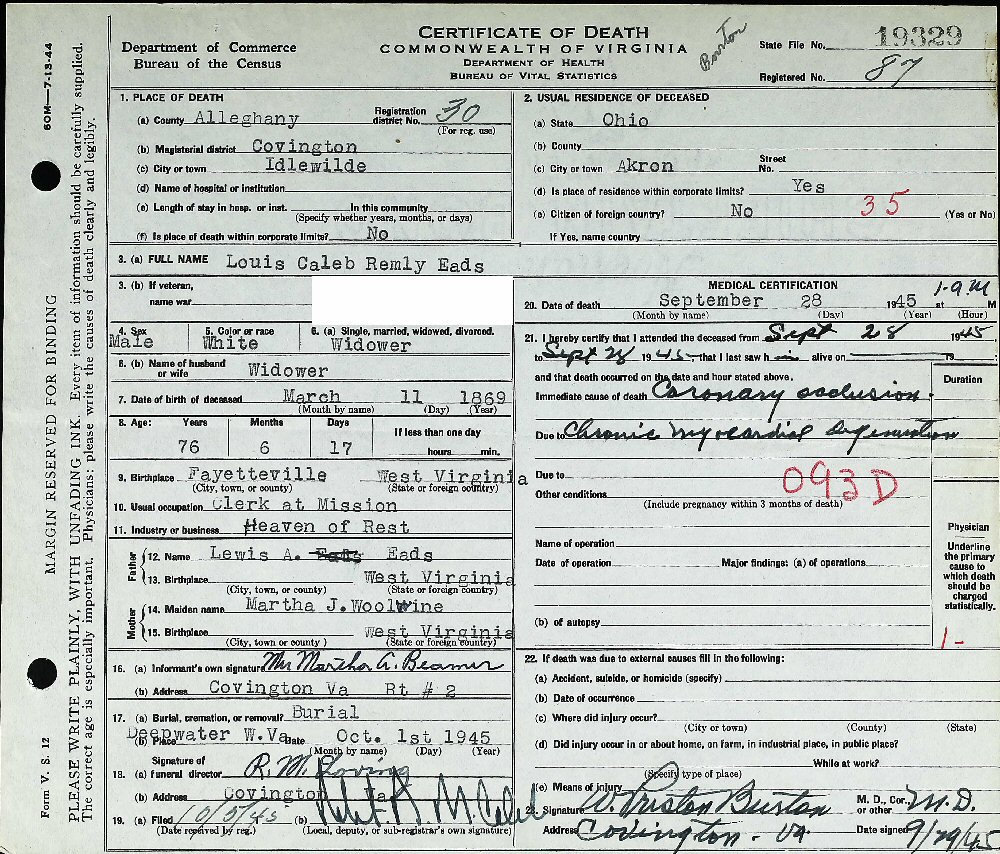 CERTIFICATE OF DEATH
COMMONWEALTH OF VIRGINIA
DEPARTMENT OF HEALTH
BUREAU OF VITAL STATISTICS
Department of Commerce
Bureau of the Census
Burton
State File No. 19329
Registered No. 87
60M—7-13-44
MARGIN RESERVED FOR BINDING
PLEASE WRITE PLAINLY, WITH UNFADING INK. Every item of information should be carefully supplied.
The correct age is especially important. Physicians: please write the causes of death clearly and legibly.
Form V. S. 12
1. PLACE OF DEATH
(a) County Alleghany Registration district No. 30
(For reg. use)
(b) Magisterial district Covington
(c) City or town Idlewilde
(d) Name of hospital or institution
(e) Length of stay in hosp. or inst. In this community
(Specify whether years, months, or days)
(f) Is place of death within corporate limits? No
2. USUAL RESIDENCE OF DECEASED
(a) State Ohio
(b) County
(c) City or town Akron Street No.
(d) Is place of residence within corporate limits? Yes
(e) Citizen of foreign country? No 35 (Yes or No)
If Yes, name country
3. (a) FULL NAME Louis Caleb Remly Eads
3. (b) If veteran,
name war
4. Sex Male
5. Color or race White
6. (a) Single, married, widowed, divorced. Widower
6. (b) Name of husband or wife Widower
7. Date of birth of deceased March 11 1869
(Month by name) (Day) (Year)
8. Age: Years Months Days If less than one day
76 6 17 hours min.
9. Birthplace Fayetteville West Virginia
(City, town, or county) (State or foreign country)
10. Usual occupation Clerk at Mission
11. Industry or business Heaven of Rest
Father
12. Name Lewis A. Eads Eads
13. Birthplace West Virginia
(City, town, or county) (State or foreign country)
Mother
14. Maiden name Martha J. Woolwine
15. Birthplace West Virginia
(City, town or county ) (State or foreign country)
16. (a) Informant's own signature Mrs Martha A. Beamer
(b) Address Covington Va Rt # 2
17. (a) Burial, cremation, or removal? Burial
(b) Place Deepwater W.Va Date Oct. 1st 1945
(Month by name) (Day) (Year)
Signature of
18. (a) funeral director R. M. Loving
(b) Address Covington Va
19. (a) Filed 10/5/45 (b)
(Date received by reg.) (Local, deputy, or sub-registrar's own signature)
MEDICAL CERTIFICATION
20. Date of death September 28 1945 at 1-9 M M
(Month by name) (Day) (Year) (Hour)
21. I hereby certify that I attended the deceased from Sept 28 1945
to Sept 28 1945 that I last saw h im alive on 19
and that death occurred on the date and hour stated above.
Duration
Immediate cause of death Coronary occlusion.
Due to Chronic myocardial degeneration
Due to
093D
Other conditions
(Include pregnancy within 3 months of death)
Name of operation
Date of operation Major findings: (a) of operations
(b) of autopsy
Physician
Underline the primary cause to which death should be charged statistically.
1-
22. If death was due to external causes fill in the following:
(a) Accident, suicide, or homicide (specify)
(b) Date of occurrence
(c) Where did injury occur?
(City or town) (County) (State)
(d) Did injury occur in or about home, on farm, in industrial place, in public place?
While at work?
(Specify type of place)
(e) Means of injury
Signature Preston Burton M. D., Cor., or other M.D.
Address Covington - Va Date signed 9/29/45